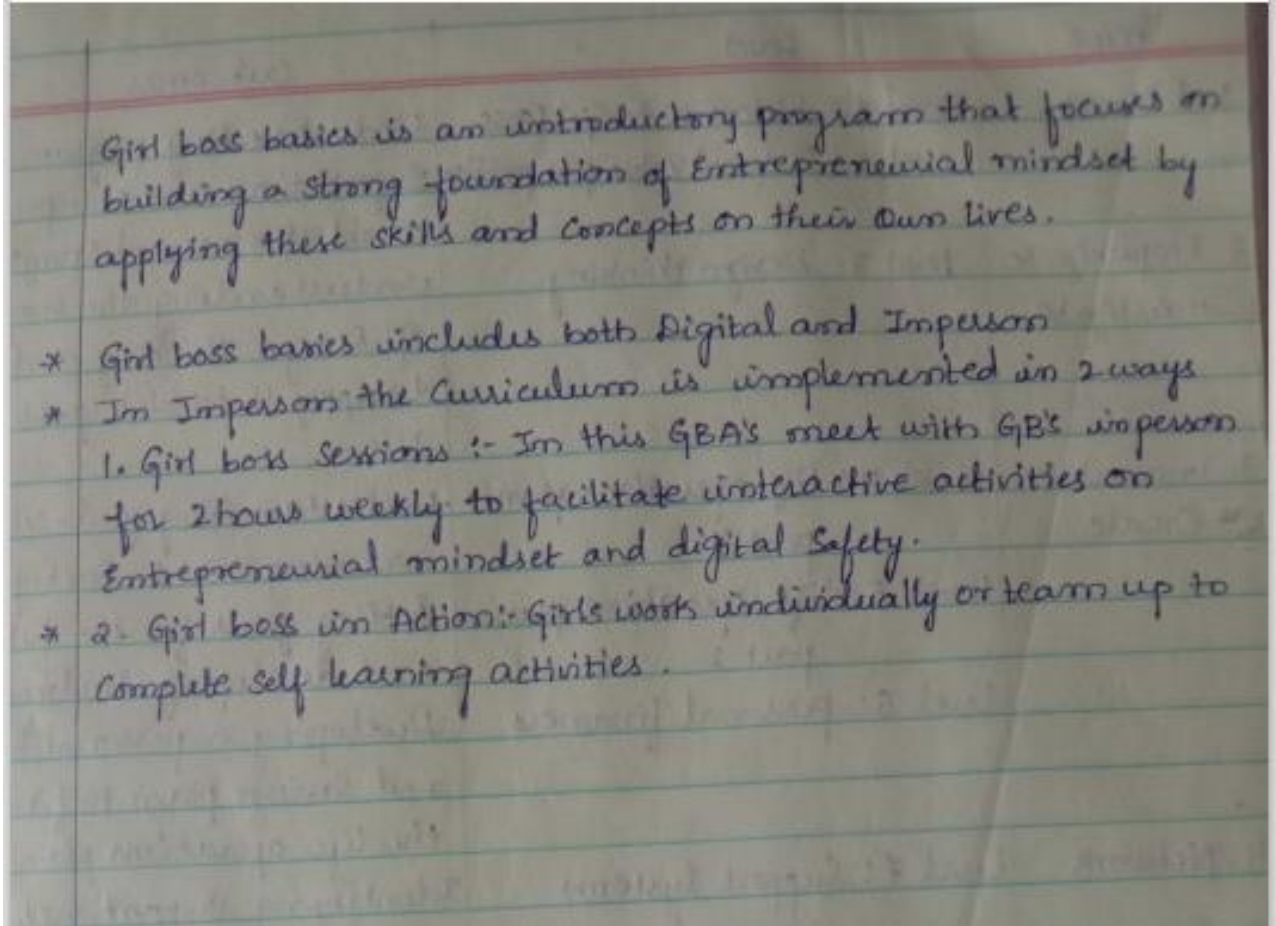 Girl boss basics is an introductory program that focuses on
building a strong foundation of Entrepreneurial mindset by
applying these skills and concepts on their own lives.
* Girl boss basics includes both Digital and Imperson
* In Imperson the Curriculum is implemented in 2 ways
1. Girl boss Sessions :- In this GBA's meet with GB's inperson
for 2 hours weekly to facilitate interactive activities on
Entrepreneurial mindset and digital Safety.
* 2. Girl boss in Action:- Girls work individually or team up to
Complete self learning activities.